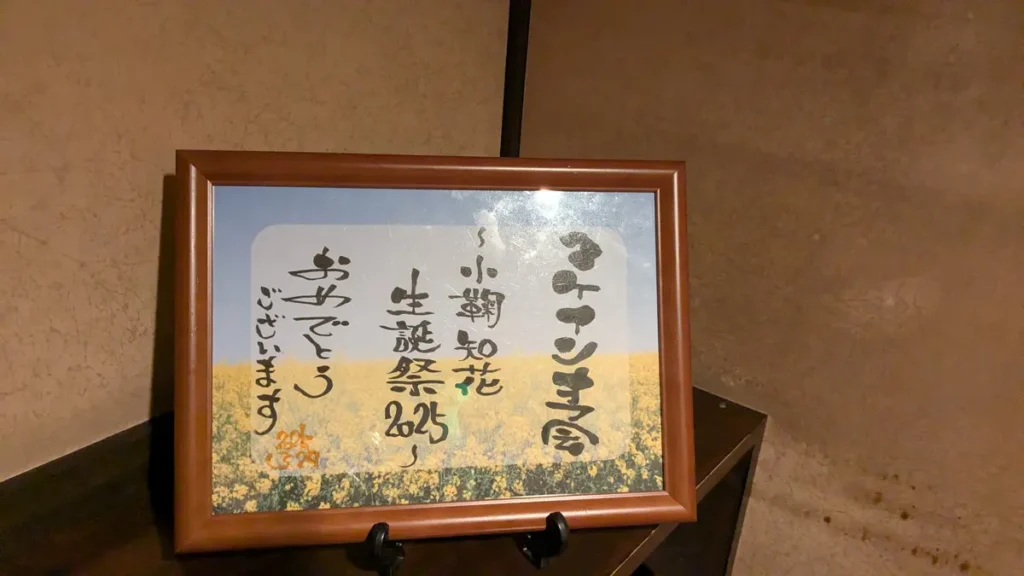 マケインオフ会
～小鞠知花
生誕祭2025～
おめでとう
ございます